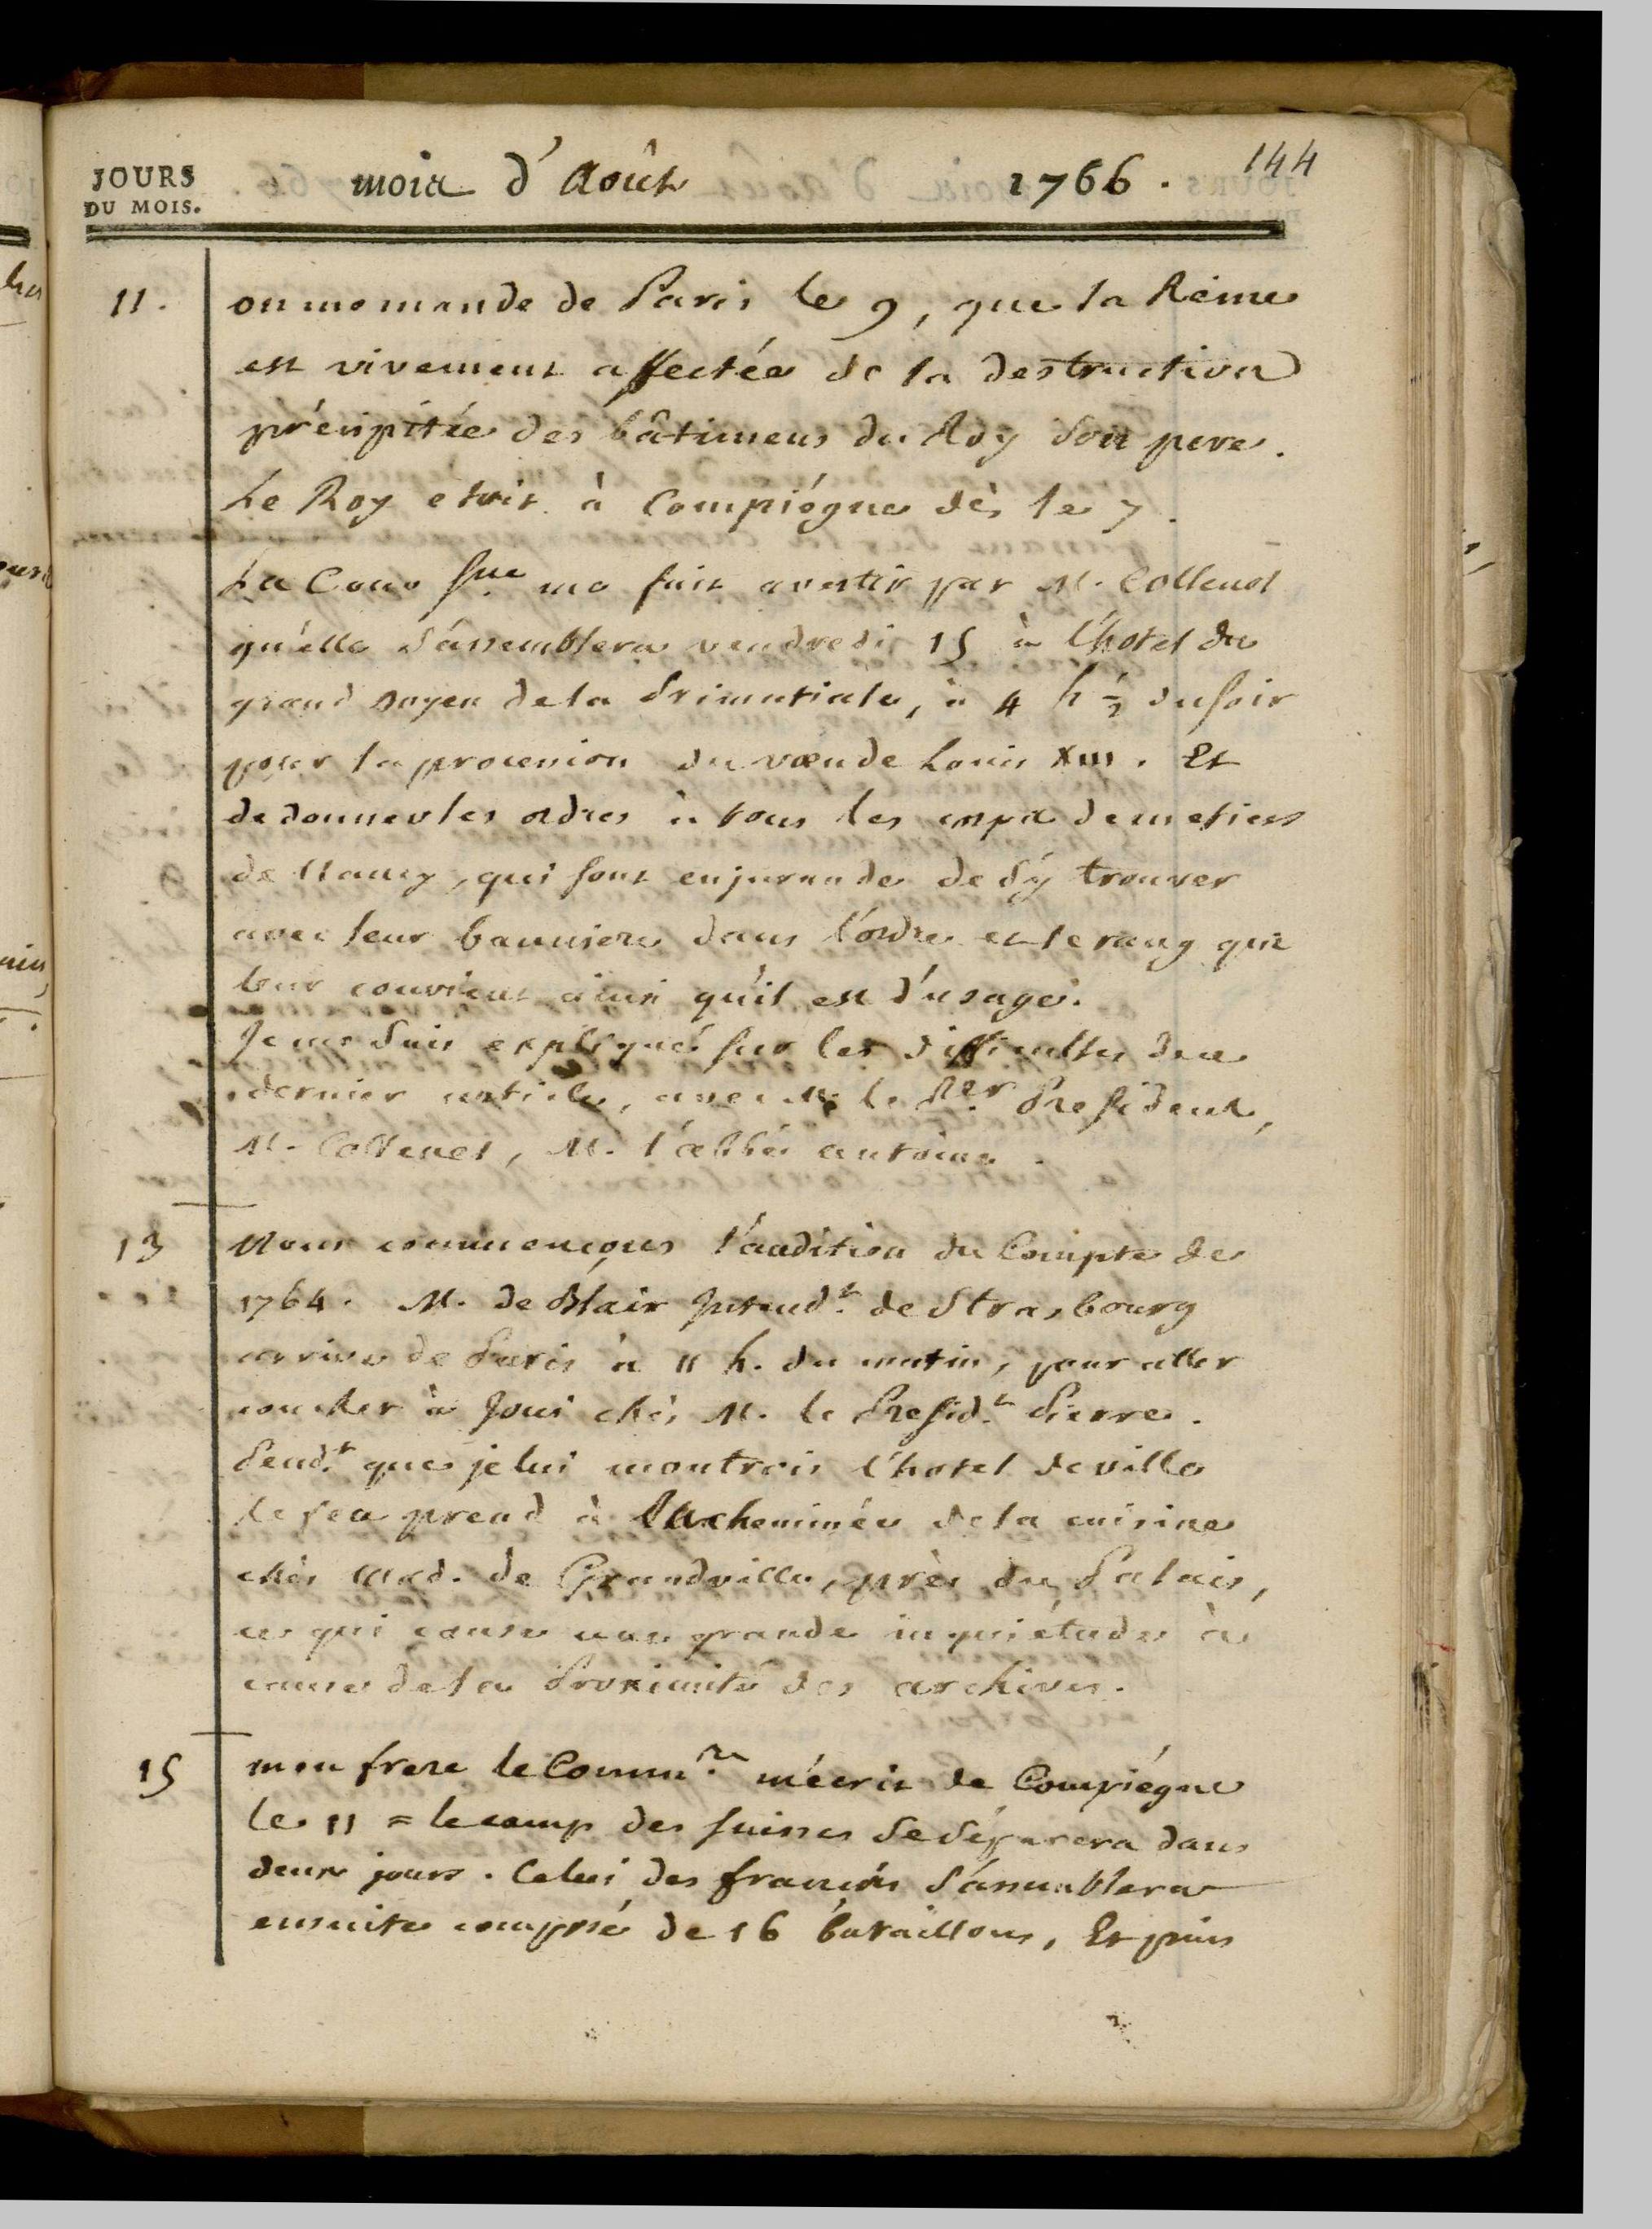 144
JOURS
DU MOIS.
mois d'Août 1766.
11. on me mande de Paris le 9, que la Reine
est vivement affectée de la destruction
précipitée des bâtimens du Roy son pere.
Le Roy etoit à Compiégne dès le 7.
La Cour Sne me fait avertir par M. Collenel
qu'elle s'assemblera vendredi 15 à l'hotel du
grand doyen de la Primatiale, à 4 h ½ du soir
pour la procession du vœu de Louis XIII. Et
de donner les ordres à tous les corps de metiers
de Nancy, qui sont en jurande de s'y trouver
avec leur banniere dans l'ordre et le rang qui
leur convient ainsi qu'il est d'usage.
Je me suis expliqué sur les difficultés de ce
dernier article, avec M. le Per President,
M. Collenel, M. l'abbé antoine.
13 Nous commençons l'audition du Compte de
1764. M. de Blair Intendt. de Strasbourg
arrive de Paris à 11 h. du matin, pour aller
coucher à Joui chès M. le Presidt. Pierre.
Pendt. que je lui montrois l'hotel de ville
le feu prend à la cheminée de la cuisine
chès Mad. de Grandville, près du Palais,
ce qui cause une grande inquiétude à
cause de la Proximité des archives.
15 mon frere le Commre. m'écrit de Compiégne
le 11 = le camp des suisses se séparera dans
deux jours. Celui des francois s'assemblera
ensuite composé de 16 bataillons, Et puis